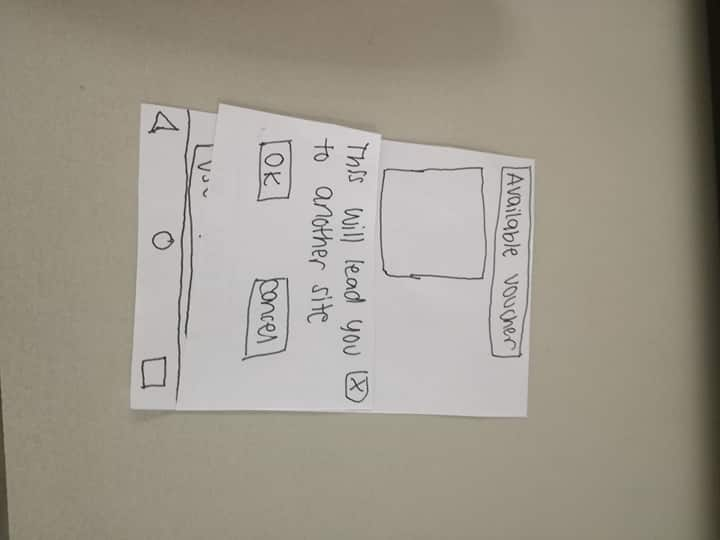 Available voucher
This will lead you X
to another site
OK Cancel